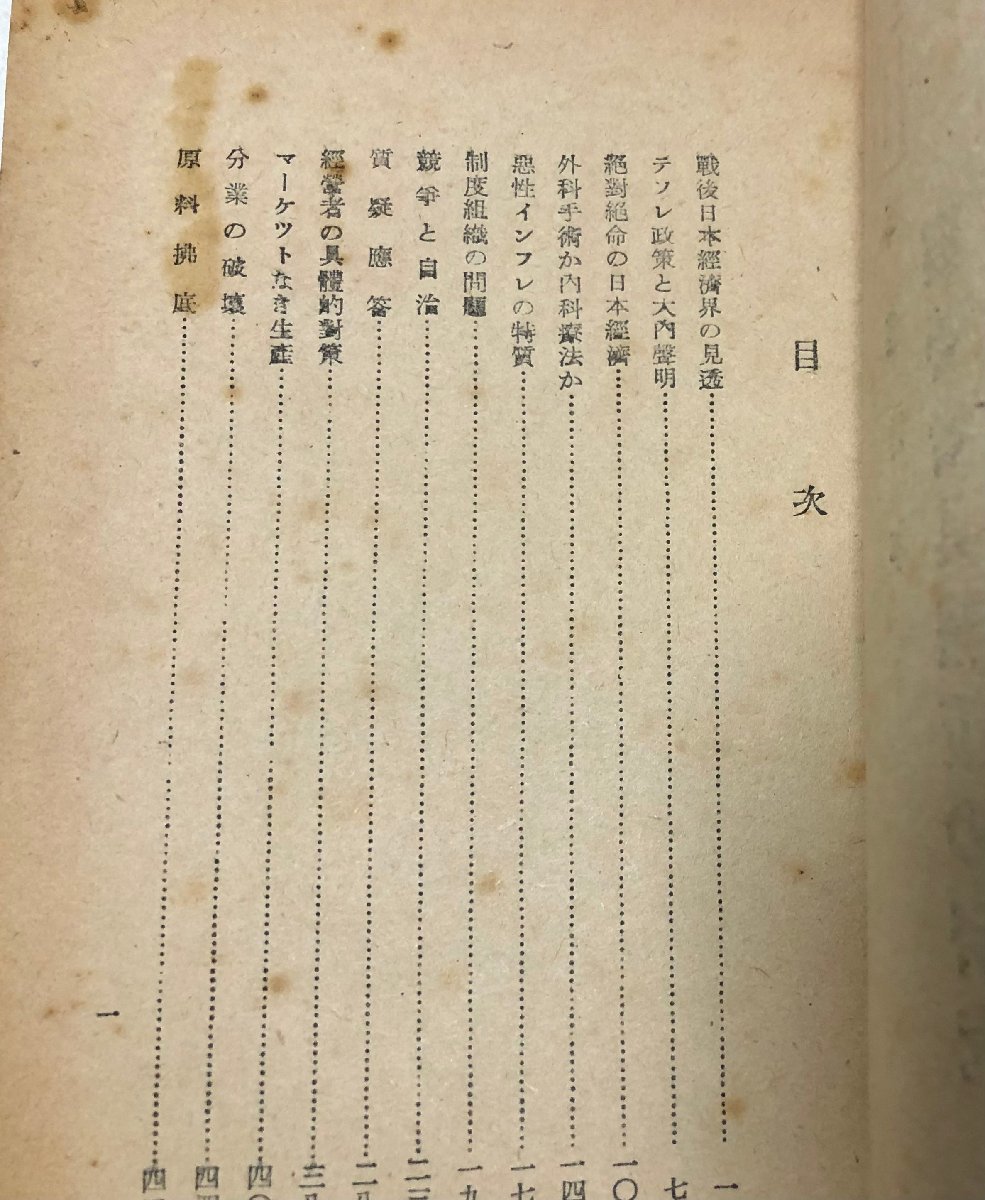 目次
戰後日本經濟界の見透……一
デフレ政策と大內聲明……七
絕對絕命の日本經濟……一〇
外科手術か內科療法か……一四
惡性インフレの特質……一七
制度組織の問題……一九
競爭と自治……二
質疑應答……二八
經營者の具體的對策……三八
マーケツトなき生產……四〇
分業の破壞……四四
原料拂底……四
一